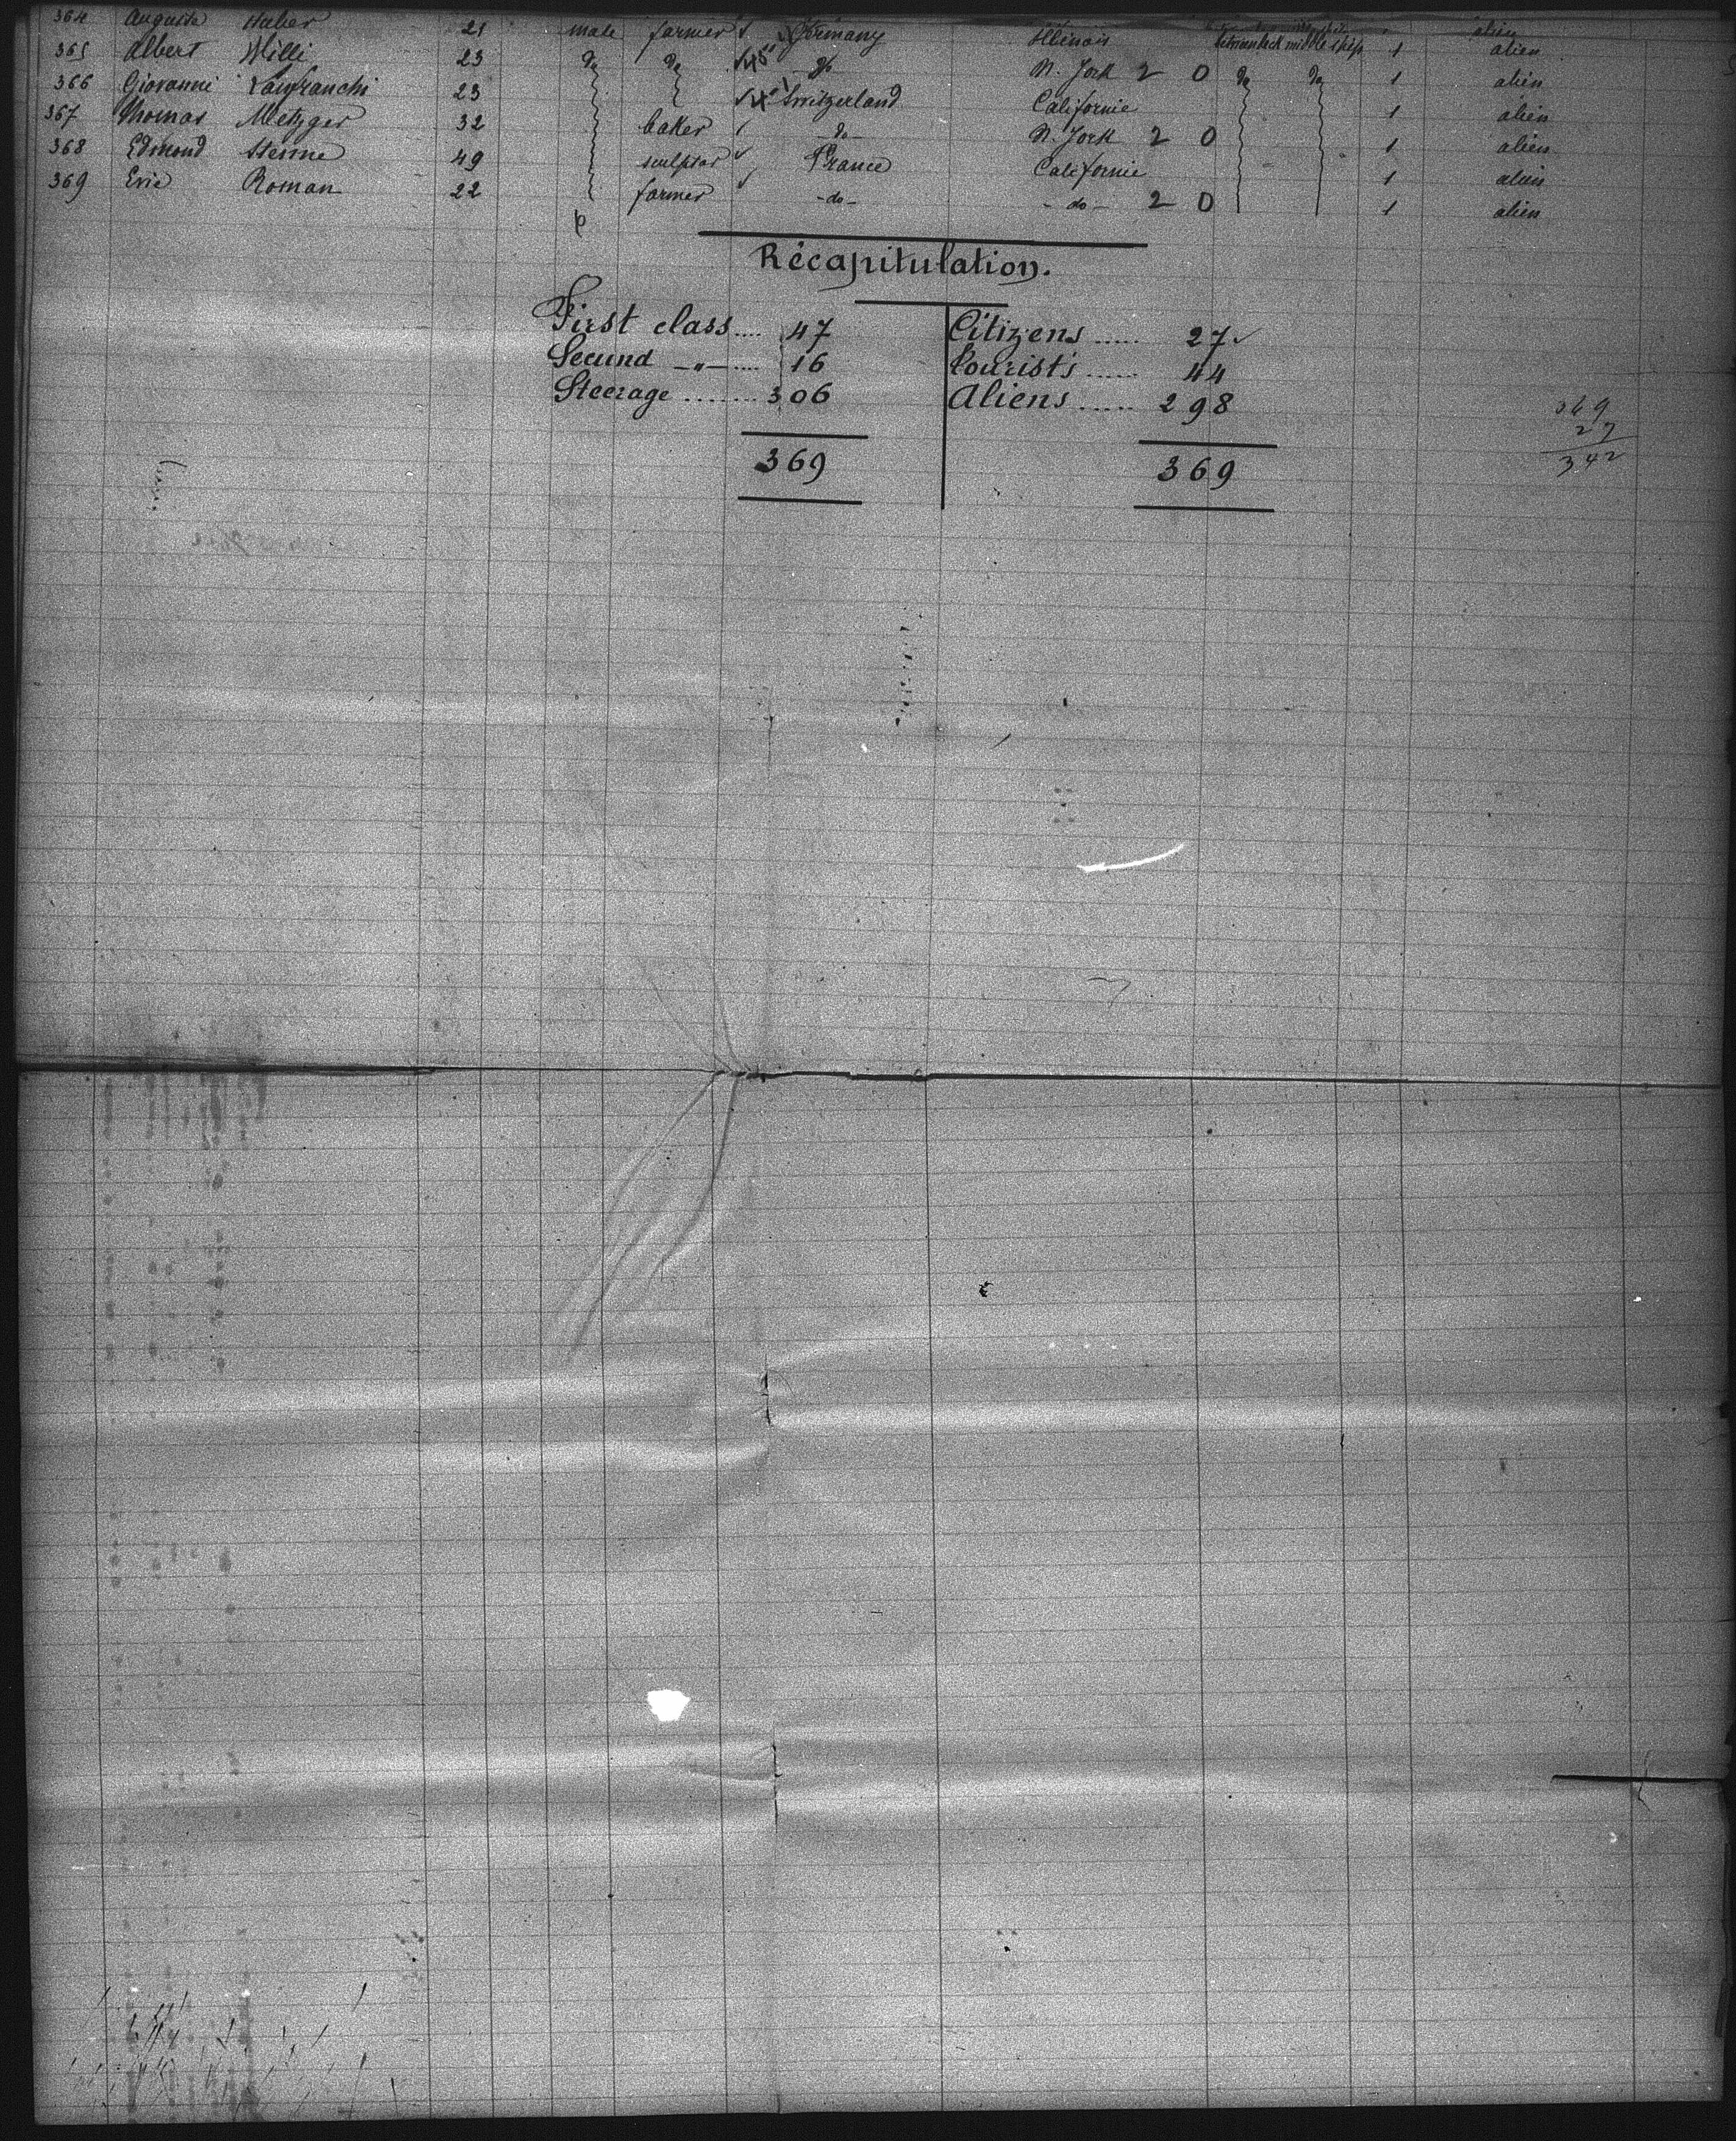 364 Auguste Huber 21 male farmer ✓ Germany Illinois 1 alien
365 Albert Willi 23 do do do N. York 2 0 do do 1 alien
366 Giovanni Lanfranchi 23 Switzerland Californie 1 alien
367 Thomas Metzger 32 baker ✓ -do- N. York 2 0 1 alien
368 Edmond Sterne 49 sculptor ✓ France Californie 1 alien
369 Roman 22 farmer ✓ -do- -do- 2 0 1 alien
Récapitulation.
First class.... 47 Citizens ..... 27 ✓
Secund —„—.... 16 tourists ...... 44
Steerage ....... 306 Aliens ..... 298
369 369
369
27
342